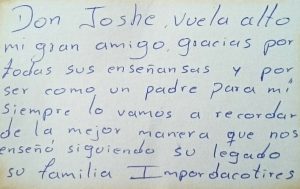 Don Joshe, vuela alto
mi gran amigo, gracias por
todas sus enseñansas y por
ser como un padre para mi
siempre lo vamos a recordar
de la mejor manera que nos
enseño siguiendo su legado
su familia Impordacotires